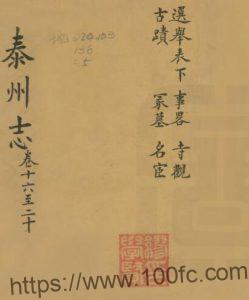 選舉表下 事畧 寺觀
古蹟 冢墓 名宦
泰州志 卷十六至二十
156
https://www.100fc.com